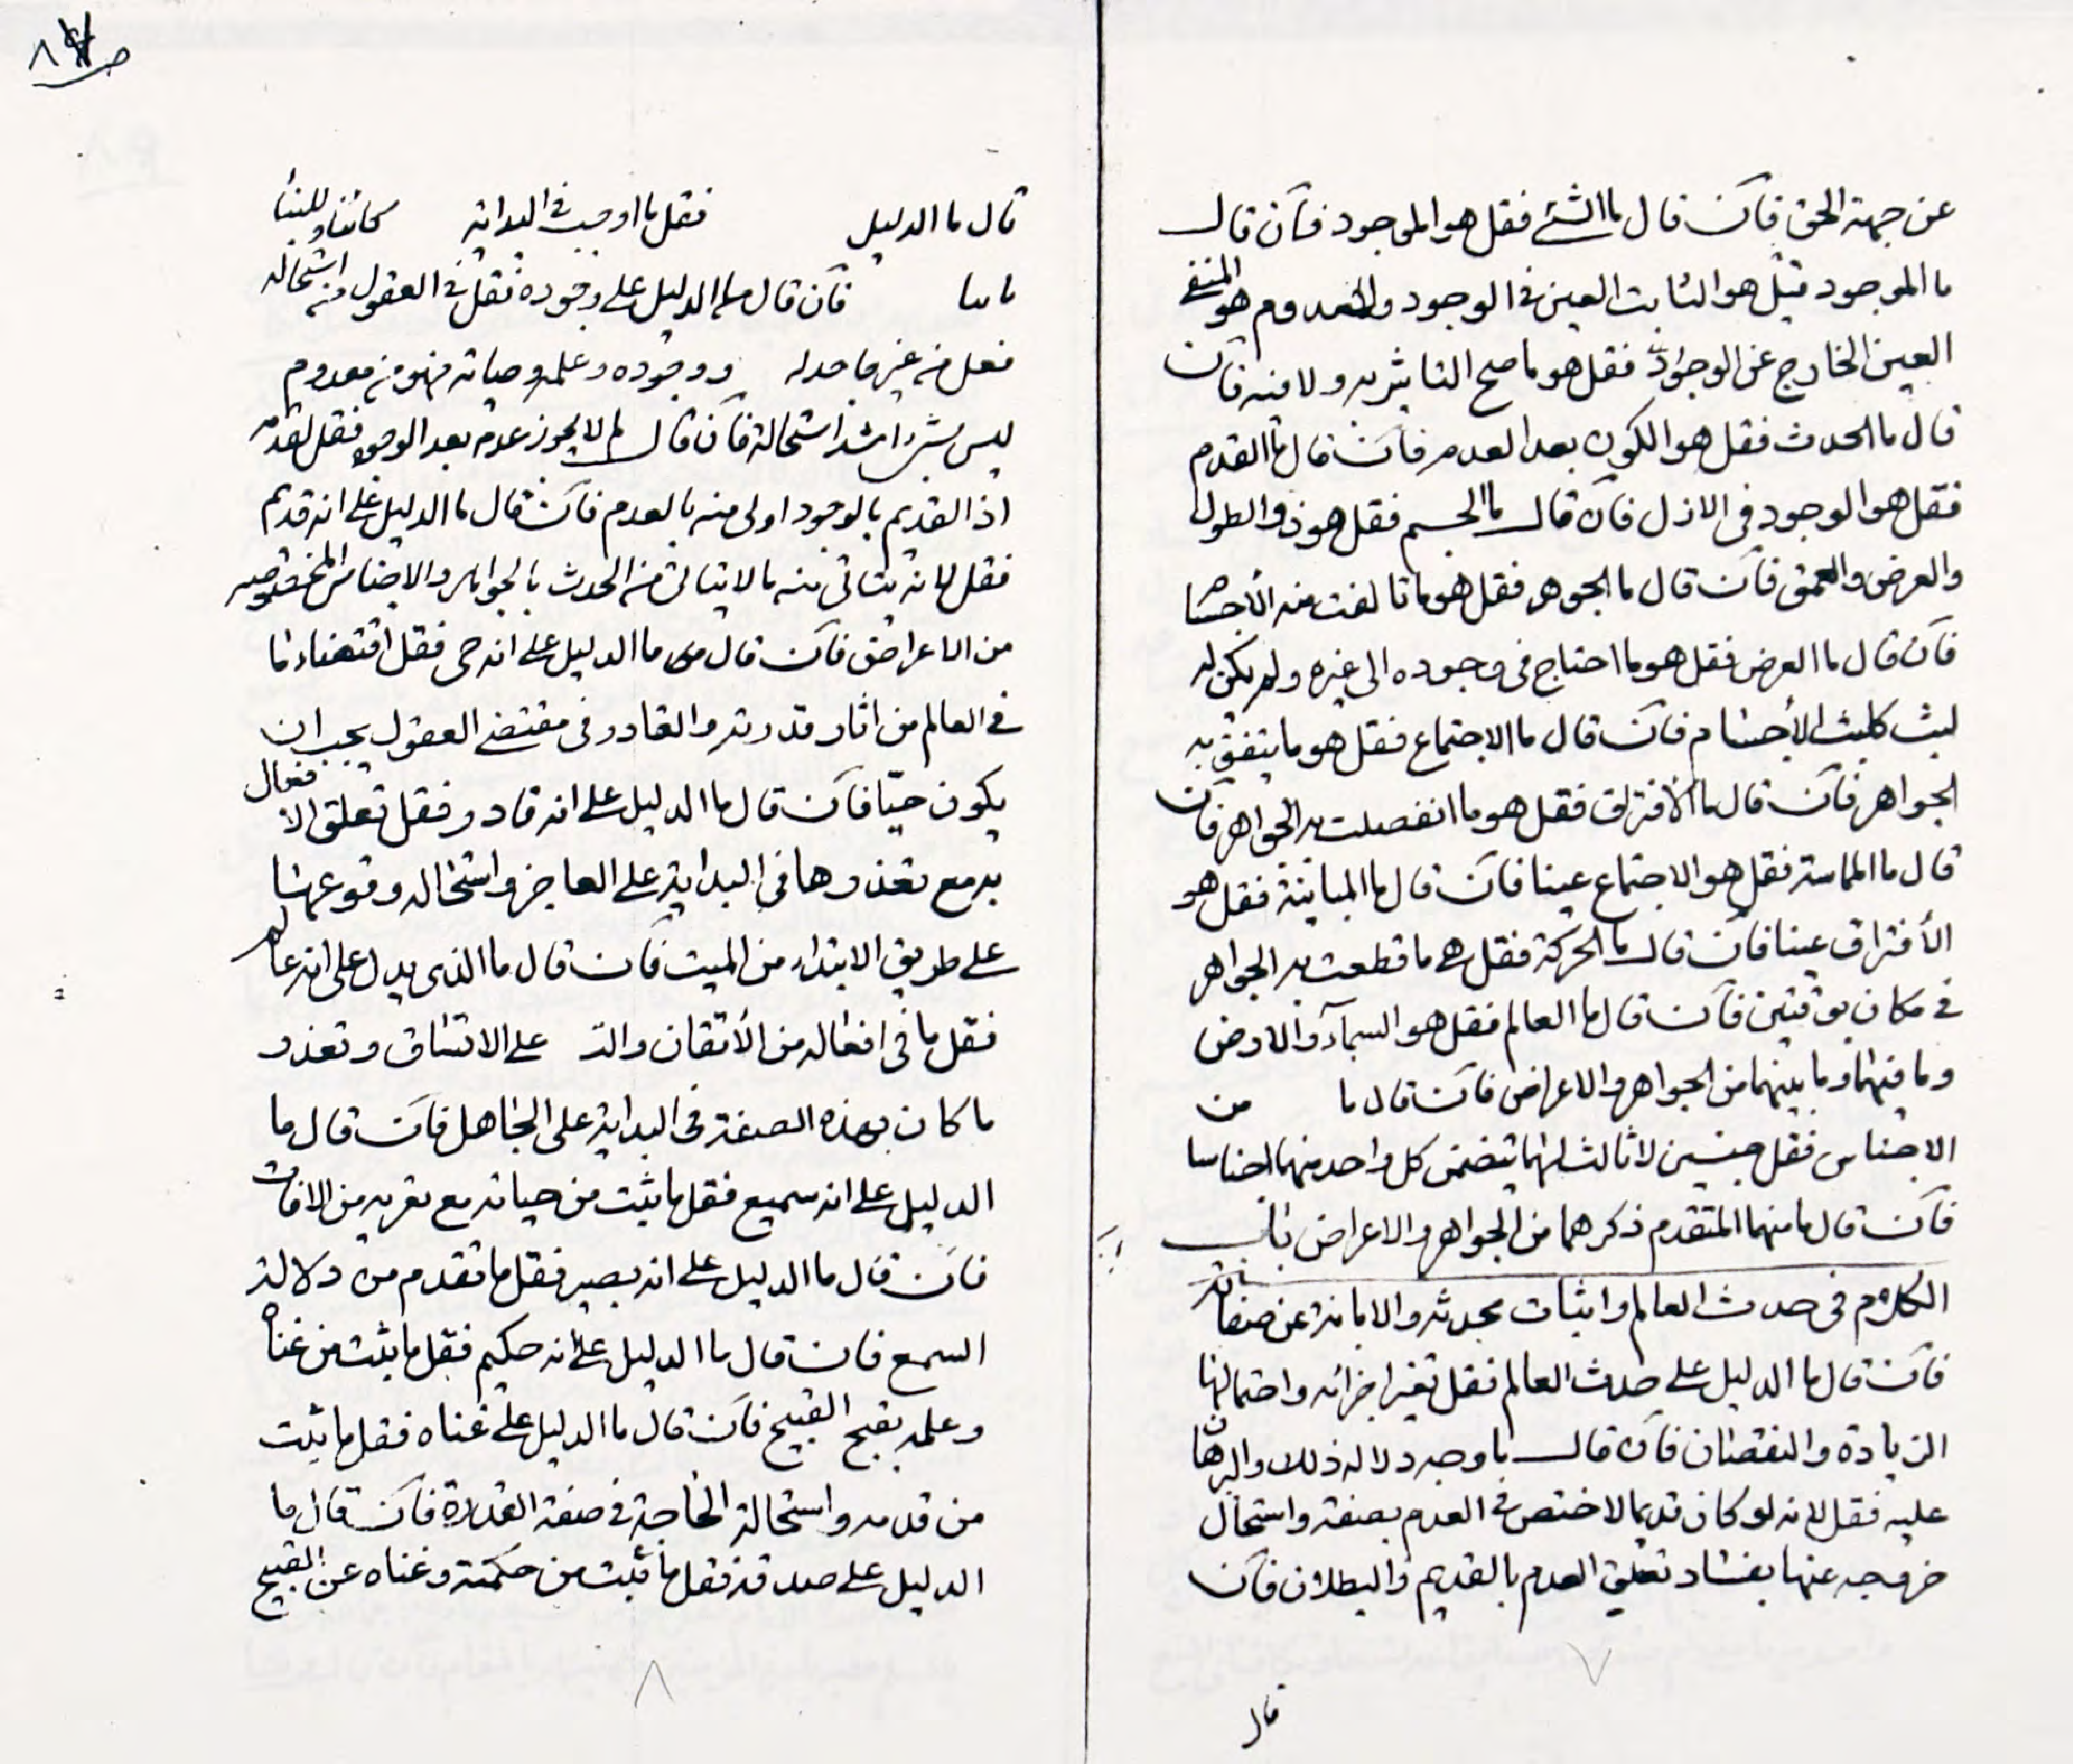 عن جهة الحق فآن قال ما الشئ فقل هو الموجود فآن قال
ما الموجود قيل هو الثابت العين في الوجود والمعدوم هو المنفي
العين الخارج عن الوجود فقل هو ما صح التاثير به ولا فيه فآن
قال ما الحدث فقل هو الكون بعد العدم فآن قال ما القدم
فقل هو الوجود في الازل فآن قال ما الجسم فقل هو ذو الطول
والعرض والعمق فآن قال ما الجوهر فقل هو ما تالفت منه الأجسام
فآن قال ما العرض فقل هو ما احتاج في وجوده الى غيره ولم يكن له
لبث كلبث الأجسام فآن قال ما الاجتماع فقل هو ما يتفق به
الجواهر فآن قال ما الافتراق فقل هو ما انفصلت به الجواهر فآن
قال ما المماسة فقل هو الاجتماع عينا فآن قال ما المباينة فقل هو
الأفتراق عينا فآن قال ما الحركة فقل هي ما قطعت به الجواهر
في مكان بوقتين فآن قال ما العالم فقل هو السمآء والارض
وما فيهما وما بينهما من الجواهر والاعراض فآن قال ما من
الاجناس فقل جنسين لا ثالث لهما يتضمن كل واحد منهما اجناسا
فآن قال ما منهما المتقدم ذكرهما من الجواهر والاعراض باب
الكلام في حدث العالم واثبات محدثه والابانة عن صفاته
فآن قال ما الدليل على حدث العالم فقل تغير اجزائه واحتمالها
الزيادة والنقصان فآن قال ما وجه دلالة ذلك والبرهان
عليه فقل لانه لو كان قديما لاختص في العدم بصفة واستحال
خروجه عنها بفساد تعلق العدم بالقديم والبطلان فآن
٧
قال
٨
قال ما الدليل فقل ما اوجب في البداية كاتبا وللبناء
بانيا فآن قال ما الدليل على وجوده فقل في العقول منه استحالة
فعل من غير فاعله ووجوده وعلمه وحياته فهو من معدوم
ليس بشئ اشد استحالة فآن قال لم لا يجوز عدمه بعد الوجود فقل لقدمه
اذ القديم بالوجود اولى منه بالعدم فآن قال ما الدليل على انه قديم
فقل لانه يتاتى منه ما لا يتاتى من الحدث بالجواهر والاجناس المخصوصه
من الاعراض فآن قال ما الدليل على انه حى فقل اقتضاء ما
في العالم من اثار قدرته والقادر في مقتضى العقول يجب ان
يكون حيّا فآن قال ما الدليل على انه قادر فقل تعلق الافعال
به مع تعذرها في البداية على العاجز واستحاله وقوعها
على طريق الابتداء من الميت فآن قال ما الذى يدل على انه عالم
فقل ما في افعاله من الأتقان والت على الاتساق وتعذر
ما كان بهذه الصفة في البداية على الجاهل فآن قال ما
الدليل على انه سميع فقل ما يثبت من حياته مع تعريه من الافات
فآن قال ما الدليل على انه بصير فقل ما تقدم من دلالة
السمع فان قال ما الدليل على انه حكيم فقل ما يثبت من غناه
وعلمه بقبح القبيح فآن قال ما الدليل على غناه فقل ما يثبت
من قدمه واستحالة الحاجة في صفة القدرة فآن قال ما
الدليل على صدقه فقل ما ثبت من حكمته وغناه عن القبيح
٨